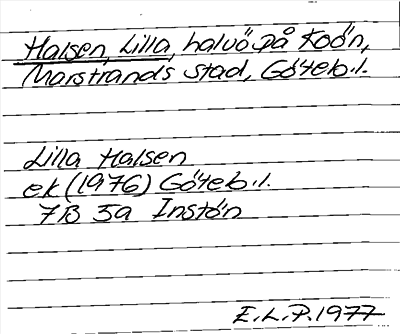 Halsen, Lilla, halvö på Koön,
Marstrands stad, Göteb.l.
Lilla Halsen
ek (1976) Göteb.l.
7B 5a Instön
E.L.P. 1977